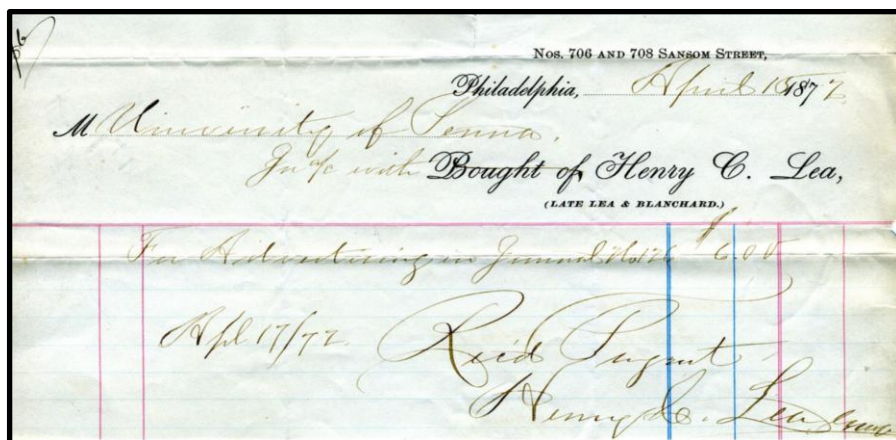 Nos. 706 and 708 Sansom Street,
Philadelphia, April 15 1872
M University of Penna.
In a/c with Bought of Henry C. Lea,
(LATE LEA & BLANCHARD.)
For Advertising in Journal No 126 $ 6.00
Apl 17/72. Rec'd Paymt
Henry C. Lea